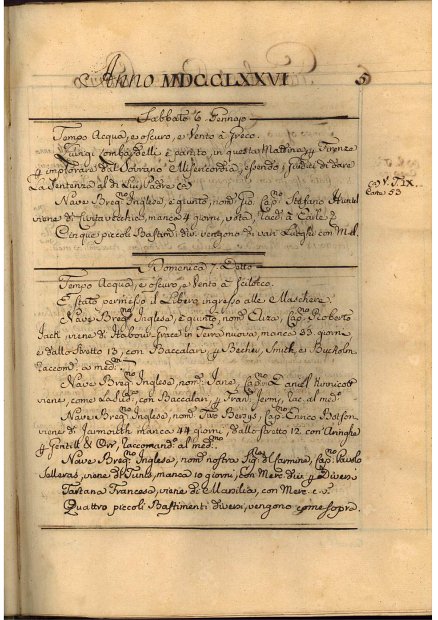 Anno MDCCLXXVI 5
Sabbato 6. Gennajo
Tempo Acqua, e oscuro, e Vento à Greco.
Luigi Lombardelli è partito, in questa Mattina p Firenze
p implorare dal Sovrano Misericordia, essendo i Giudici di dare
La Sentenza al di Lui Padre
Nave Inglese, è giunto, nom. Cap.no Stefano
viene di Civitavecchia, manca 4 giorni, vota,
Cinque piccoli Bastim.ti div.i vengono di vari Luoghi con M.d.
Carte 53
Domenica 7. Detto
Tempo Acqua, e oscuro, e Vento à Scilocco.
È stato permesso il Libero ingresso alle Maschere.
Nave Inglese, è giunto, nom. Eliza, Cap.no Roberto
Jack, viene di in Terra nuova, manca 33 giorni,
e dallo Stretto 13, con Baccalari, p Smith, ei
raccom. a med.mi
Nave Inglese, nom. Jane, Cap.no Daniel
viene, come La dº, con Baccalari, p Frank Jermi, al med.º
Nave Inglese, nom. Two Cap.no Enrico Botson,
viene di Jarmouth manca 44 giorni, dallo Stretto 12. con Aringhe
p Gentill & Orr, raccomand.º al med.mo
Nave Inglese, nom. nostra Sig.ra del Carmine, Cap.no Paolo
viene di Tunis, manca 10 giorni, con Merc. div.e p Diversi
Tartana Francese, viene di Marsilia, con Merc. e
Quattro piccoli Bastimenti diversi, vengono come sopra.